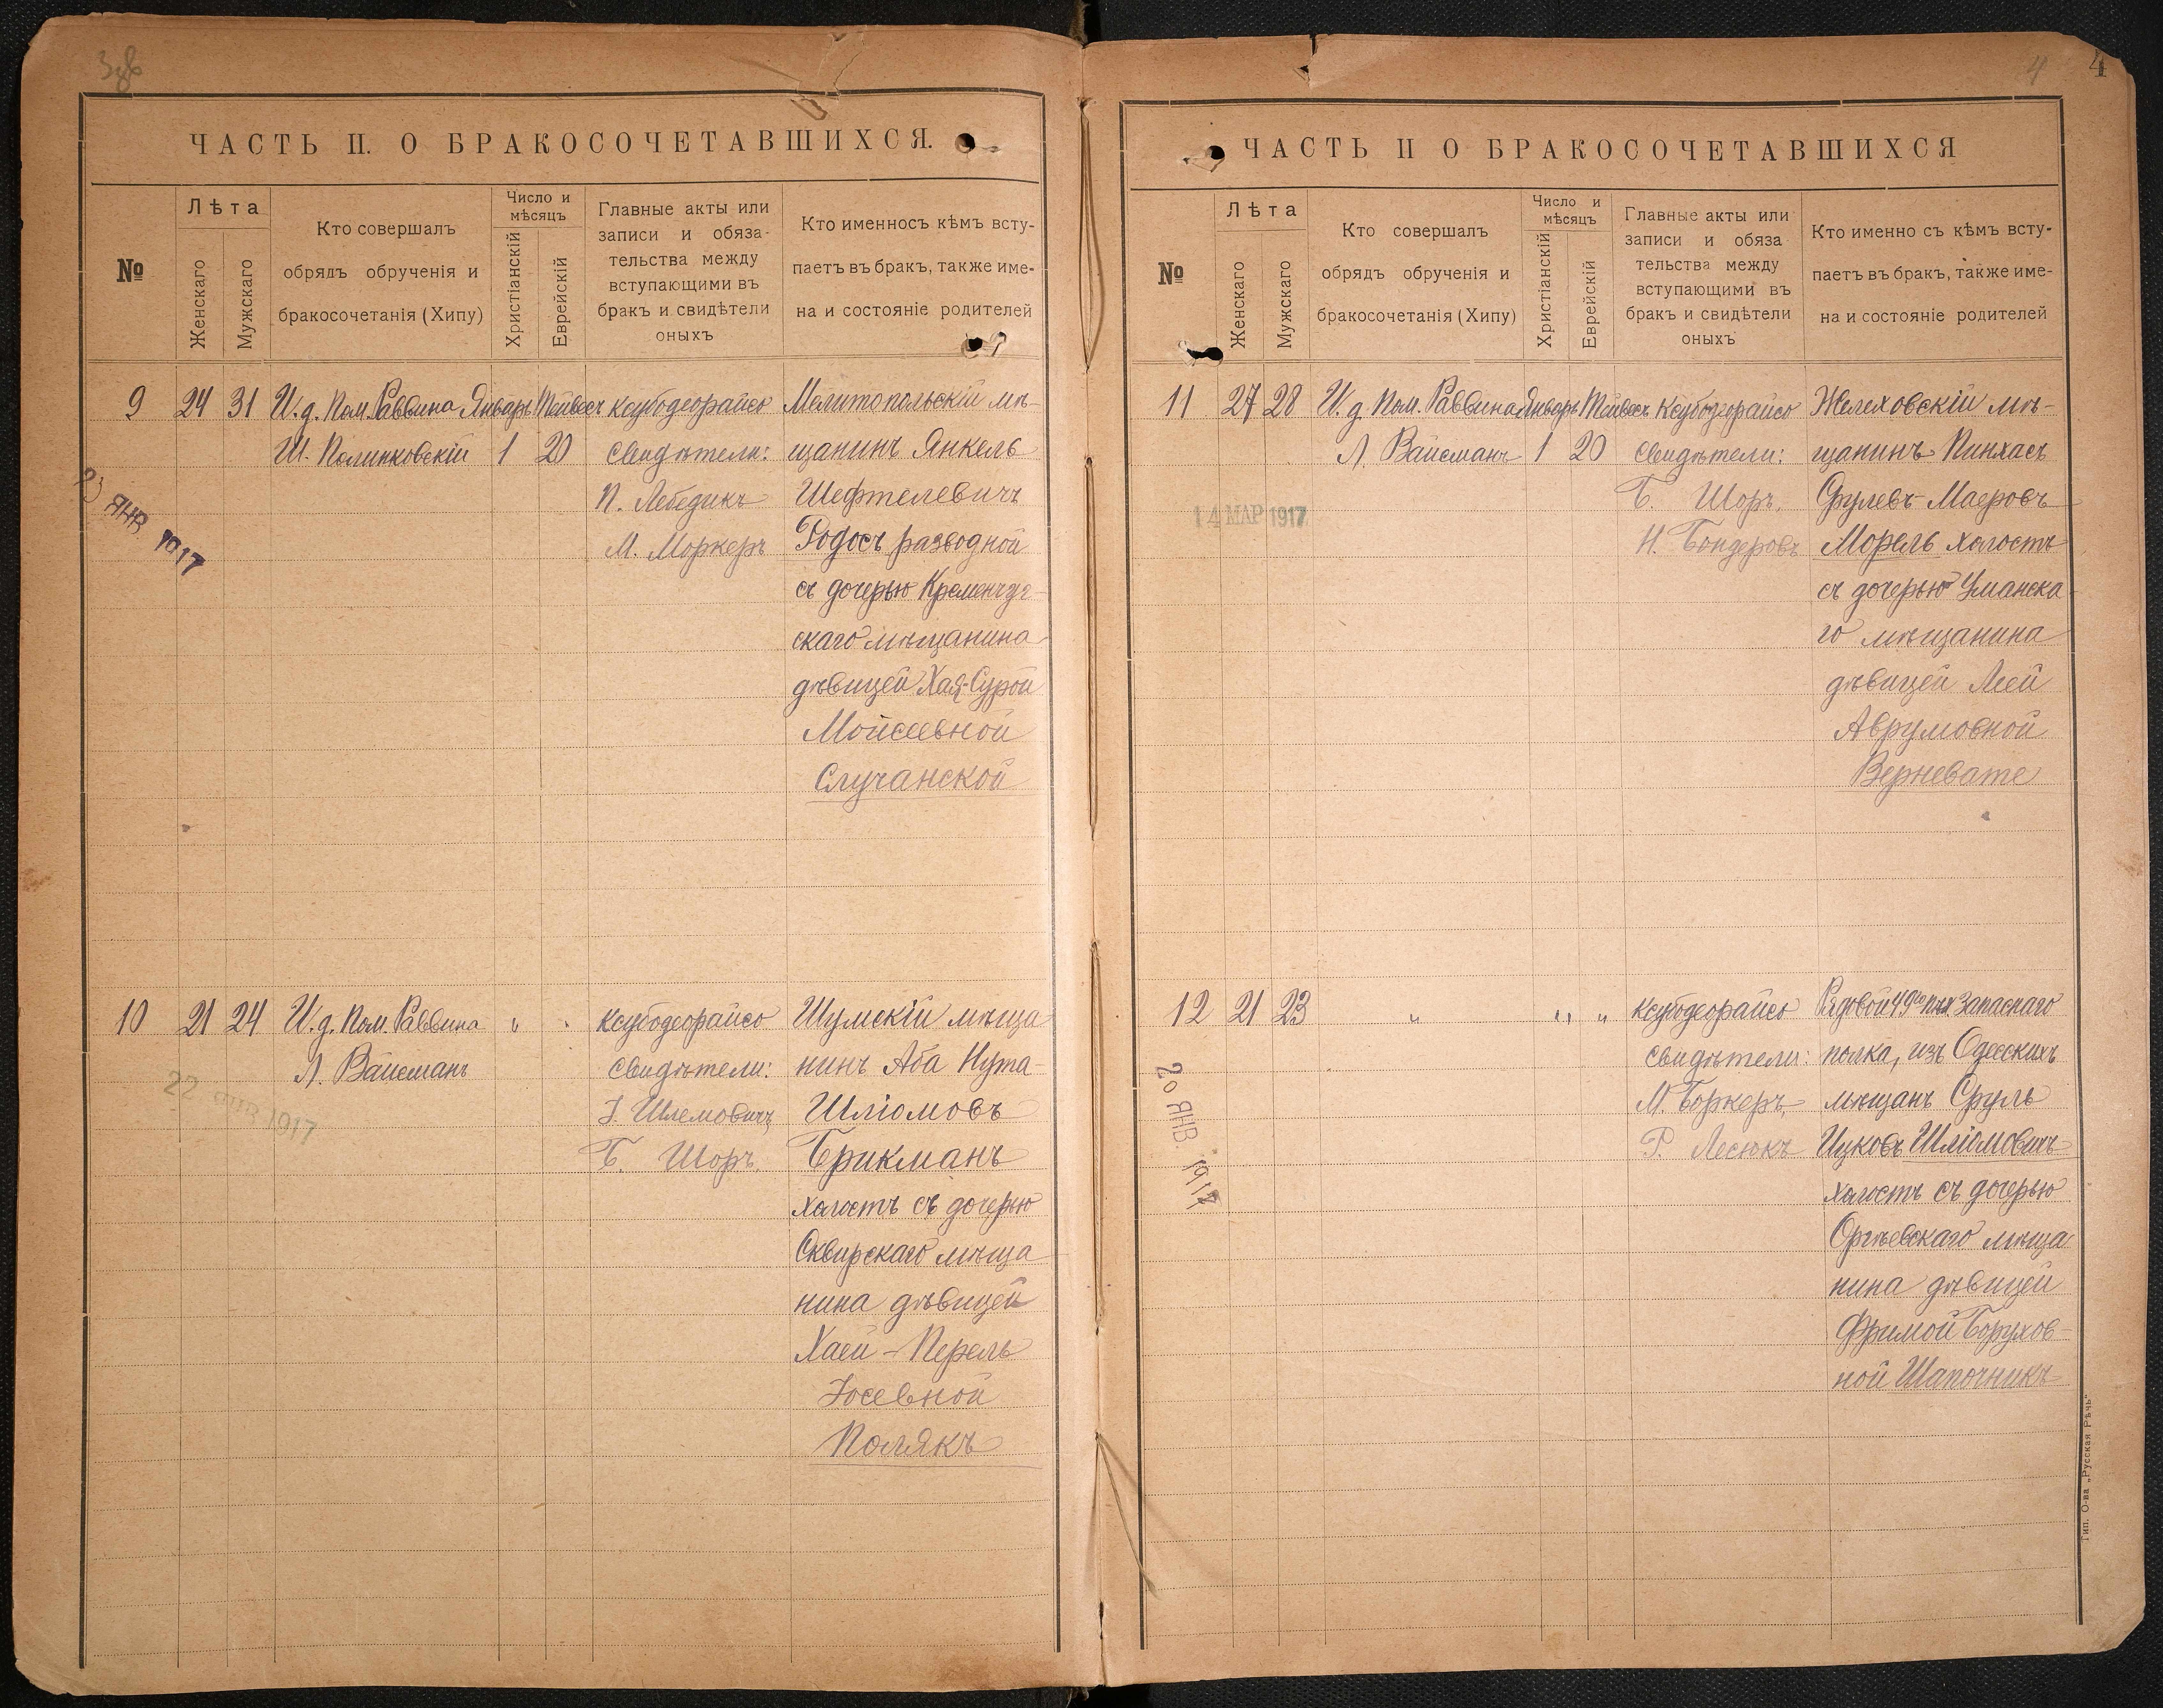 3об
ЧАСТЬ II. О БРАКОСОЧЕТАВШИХСЯ.
№
Лѣта
Женскаго
Мужскаго
Кто совершалъ
обрядъ обрученія и
бракосочетанія (Хипу)
Число и
мѣсяцъ
Христіанскій
Еврейскій
Главные акты или
записи и обяза-
тельства между
вступающими въ
бракъ и свидѣтели
оныхъ
Кто именносъ кѣмъ всту-
паетъ въ бракъ, также име-
на и состояніе родителей
9 24 31 И.д. Пом. Раввина Январь Тейвесъ Ксубодеорайсо Мелитопольскій мѣ-
Ш. Полинковскій 1 20 Свидѣтели: щанинъ Янкель
П. Лебедикъ Шефтелевичъ
М. Моркеръ Родосъ разводной
съ дочерью Кременчуг-
скаго мѣщанина
дѣвицей Хая-Сурой
Мойсеевной
Случанской
ЯНВ. 1917
10 21 24 И.д. Пом. Раввина " " Ксубодеорайсо Шумскій мѣща-
Л. Вайсманъ Свидѣтели: нинъ Аба Нута-
І. Шлемовичъ Шліомовъ
Б. Шоръ. Брикманъ
холостъ съ дочерью
Сквирскаго мѣща
нина дѣвицей
Хаей-Перель
Іосевной
Полякъ
22 ЯНВ 1917
4
4
ЧАСТЬ II О БРАКОСОЧЕТАВШИХСЯ
№
Лѣта
Женскаго
Мужскаго
Кто совершалъ
обрядъ обрученія и
бракосочетанія (Хипу)
Число и
мѣсяцъ
Христіанскій
Еврейскій
Главные акты или
записи и обяза
тельства между
вступающими въ
бракъ и свидѣтели
оныхъ
Кто именно съ кѣмъ всту-
паетъ въ бракъ, также име-
на и состояніе родителей
11 27 28 И.д. Пом. Раввина Январь Тейвесъ Ксубодеорайсо Желеховскій мѣ-
Л. Вайсманъ 1 20 Свидѣтели: щанинъ Пинхасъ
Б. Шоръ. Срулевъ-Маеровъ
Н. Бондеровъ Морель холостъ
съ дочерью Уманска-
го мѣщанина
дѣвицей Леей
Аврумовной
Верневате
14 МАР 1917
12 21 23 " " " Ксубодеорайсо Рядовой 49го пѣх запаснаго
Свидѣтели: полка, изъ Одесскихъ
М. Боркеръ мѣщанъ Сруль
Р. Лесюкъ Ицковъ Шліомовичъ
холостъ съ дочерью
Оргѣевскаго мѣща
нина дѣвицей
Фримой Борухов-
ной Шапочникъ
20 ЯНВ. 1917
Тип. О-ва „Русская Рѣчь"